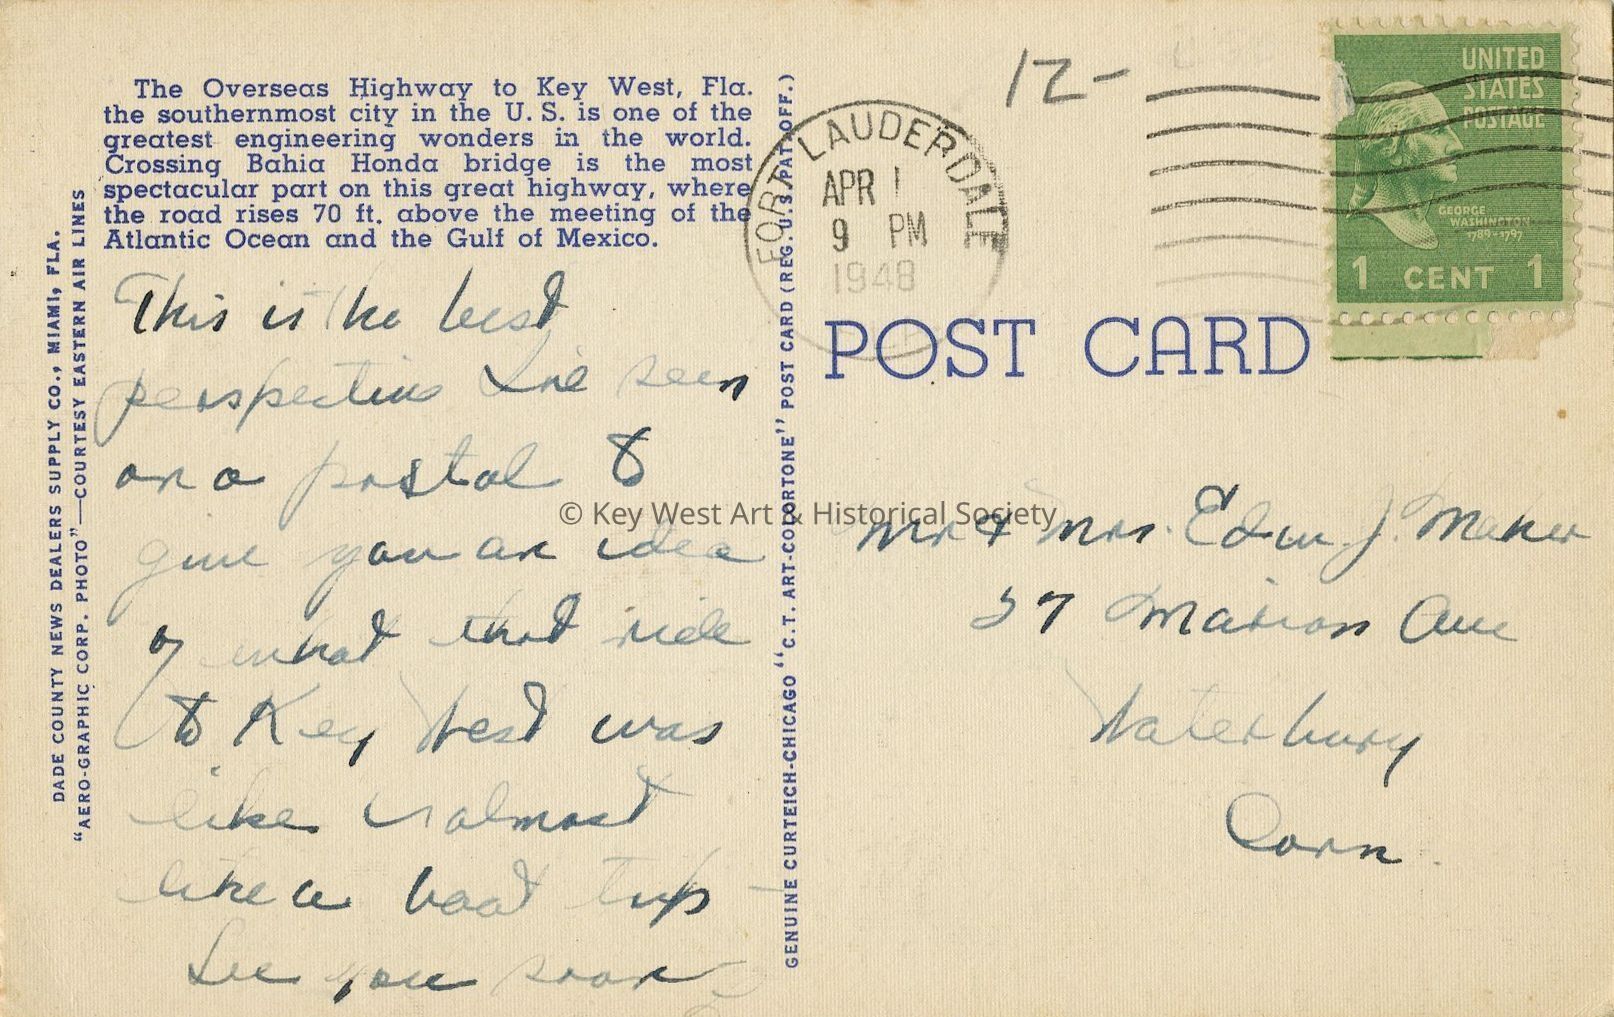 The Overseas Highway to Key West, Fla.
the southernmost city in the U. S. is one of the
greatest engineering wonders in the world.
Crossing Bahia Honda bridge is the most
spectacular part on this great highway, where
the road rises 70 ft. above the meeting of the
Atlantic Ocean and the Gulf of Mexico.
DADE COUNTY NEWS DEALERS SUPPLY CO., MIAMI, FLA.
"AERO-GRAPHIC CORP. PHOTO"—COURTESY EASTERN AIR LINES
This is the best
perspective I've seen
on a postal to
give you an idea
of what that ride
to Key West was
like almost
like a boat trip –
See you soon
GENUINE CURTEICH-CHICAGO "C.T. ART-COLORTONE" POST CARD (REG. U.S. PAT. OFF.)
FORT LAUDERDALE
APR 1
9 PM
1948
12-
UNITED
STATES
POSTAGE
GEORGE
WASHINGTON
1789-1797
1 CENT 1
POST CARD
Mr & Mrs. Edw. J. Maher
37 Marion Ave
Waterbury
Conn.
© Key West Art & Historical Society